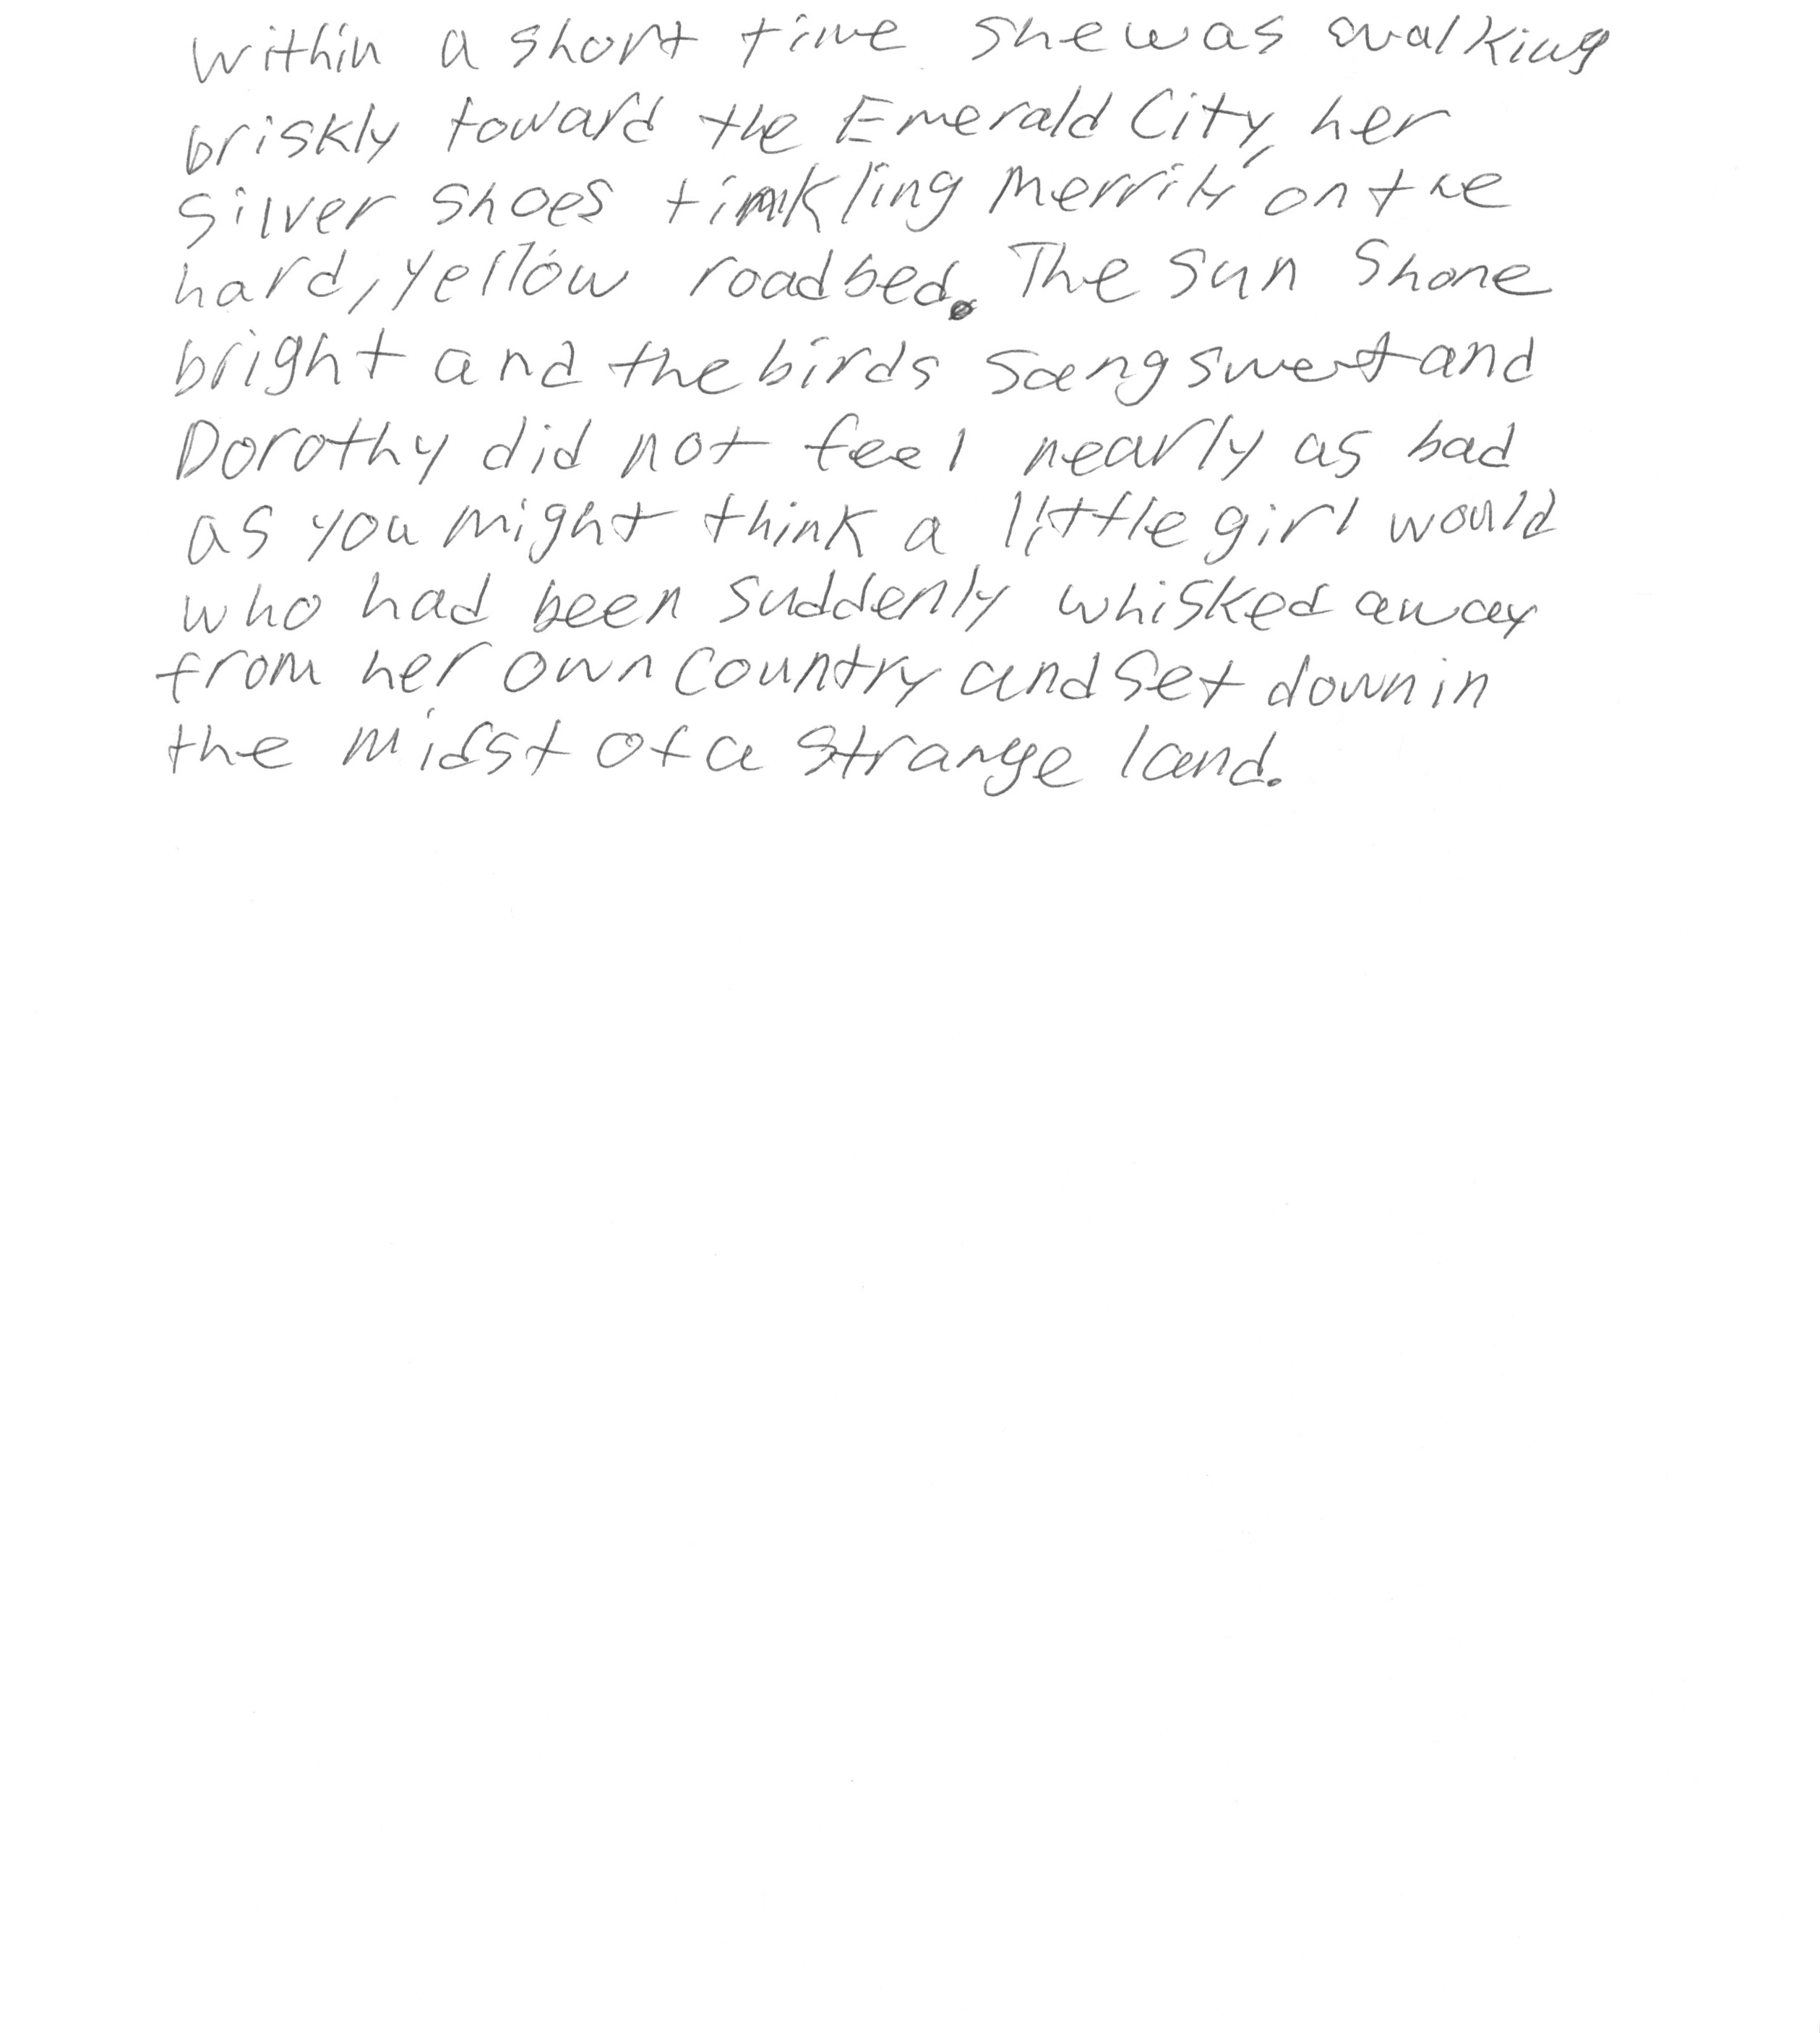 Within a short time she was walking
briskly toward the Emerald City, her
silver shoes tinkling merrily on the
hard, yellow roadbed. The sun shone
bright and the birds sang sweet and
Dorothy did not feel nearly as bad
as you might think a little girl would
who had been suddenly whisked away
from her own country and set down in
the midst of a strange land.